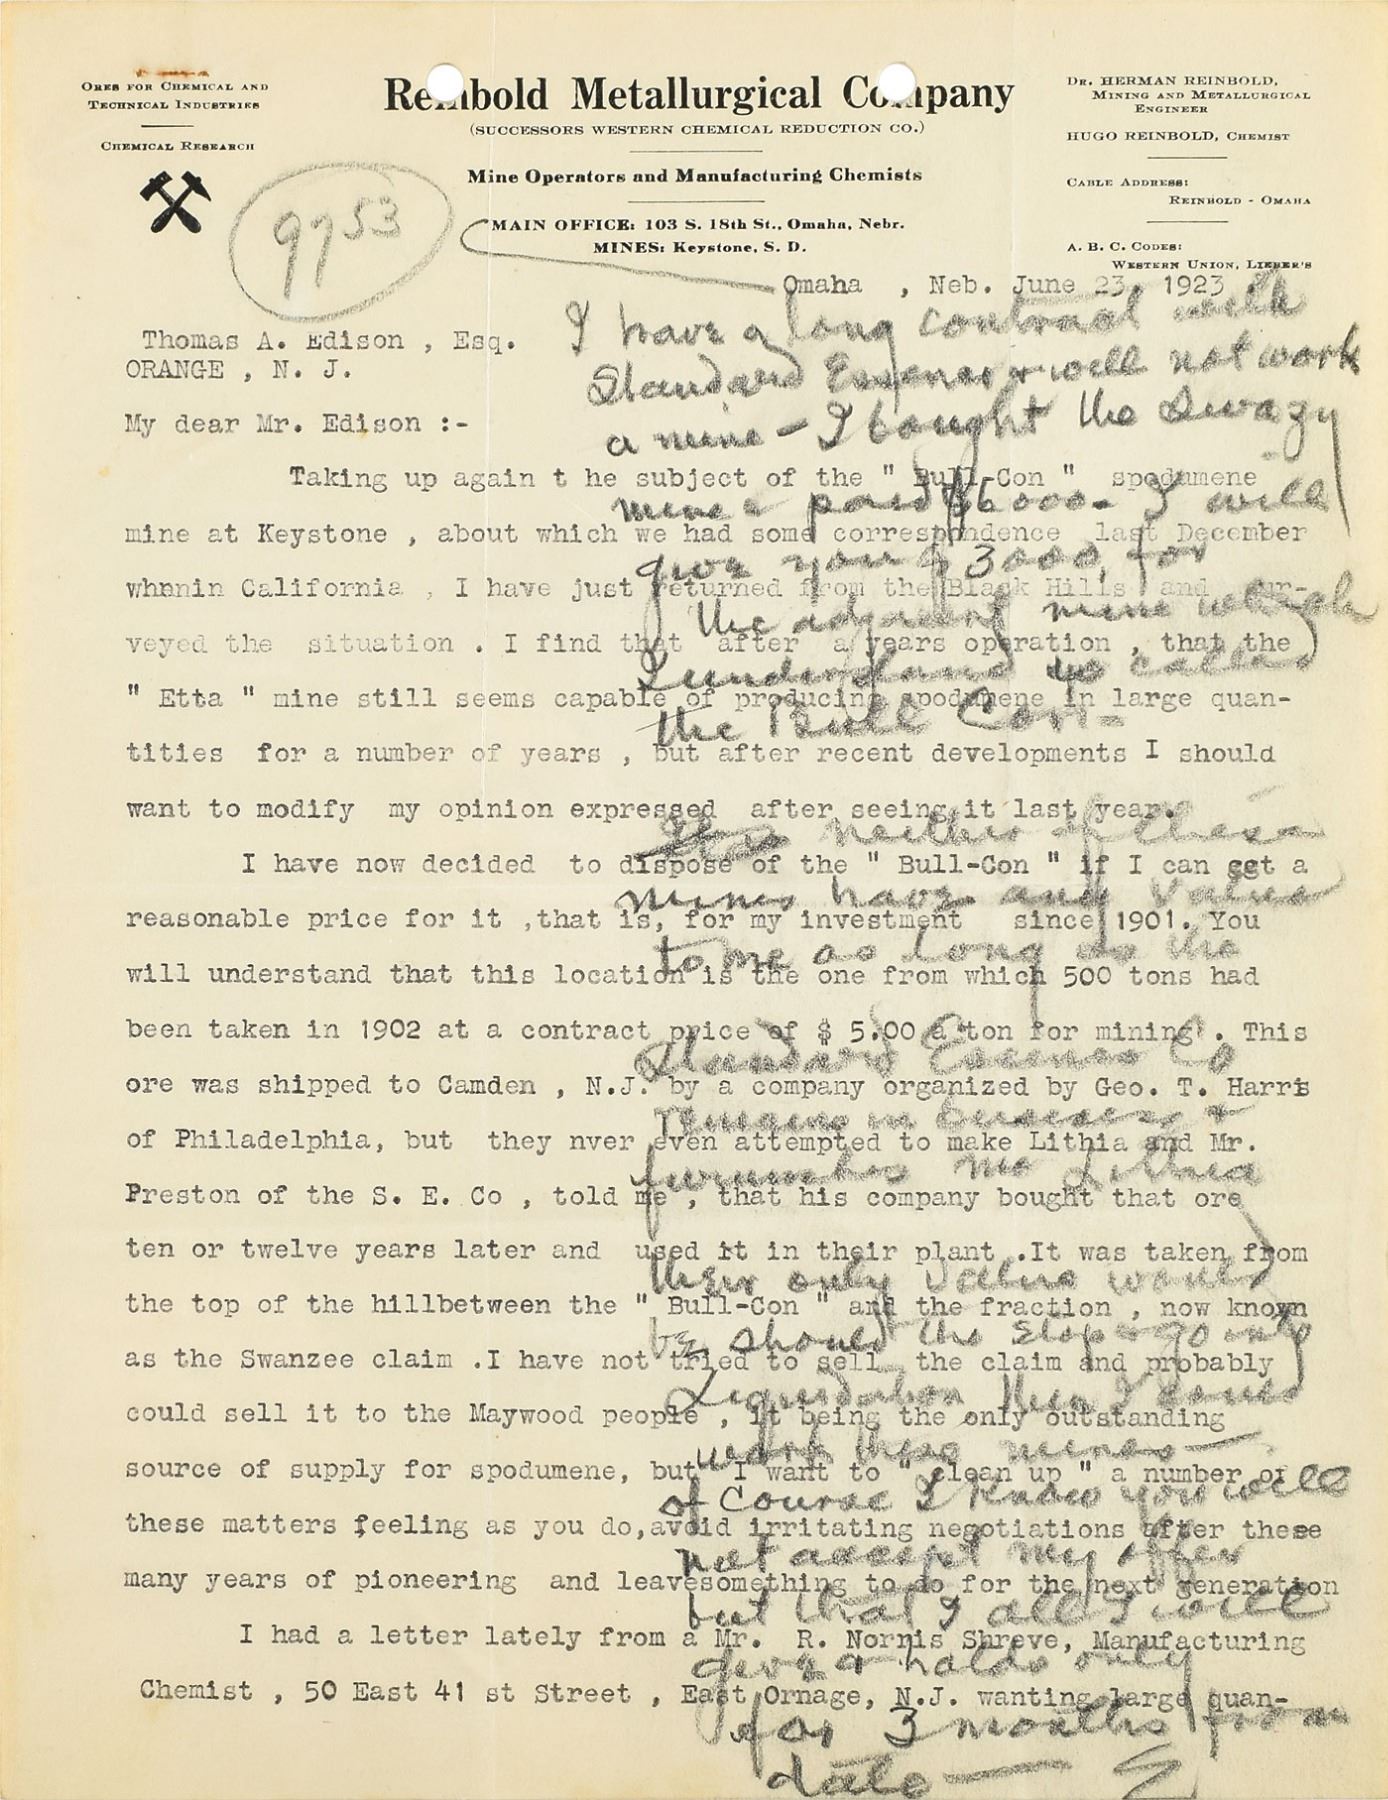 ORES FOR CHEMICAL AND
TECHNICAL INDUSTRIES
CHEMICAL RESEARCH
Reinbold Metallurgical Company
(SUCCESSORS WESTERN CHEMICAL REDUCTION CO.)
Mine Operators and Manufacturing Chemists
MAIN OFFICE: 103 S. 18th St., Omaha, Nebr.
MINES: Keystone, S. D.
DR. HERMAN REINBOLD,
MINING AND METALLURGICAL
ENGINEER
HUGO REINBOLD, CHEMIST
CABLE ADDRESS:
REINBOLD - OMAHA
A. B. C. CODES:
WESTERN UNION, LIEBER'S
9753
Omaha , Neb. June 23, 1923
Thomas A. Edison , Esq.
ORANGE , N. J.
My dear Mr. Edison :-
Taking up again t he subject of the " Bull-Con " spodumene
mine at Keystone , about which we had some correspondence last December
whnnin California , I have just returned from the Black Hills and sur-
veyed the situation . I find that after a years operation , that the
" Etta " mine still seems capable of producing spodumene in large quan-
tities for a number of years , but after recent developments I should
want to modify my opinion expressed after seeing it last year.
I have now decided to dispose of the " Bull-Con " if I can get a
reasonable price for it ,that is, for my investment since 1901. You
will understand that this location is the one from which 500 tons had
been taken in 1902 at a contract price of $ 5.00 a ton for mining . This
ore was shipped to Camden , N.J. by a company organized by Geo. T. Harris
of Philadelphia, but they nver even attempted to make Lithia and Mr.
Preston of the S. E. Co , told me , that his company bought that ore
ten or twelve years later and used it in their plant .It was taken from
the top of the hillbetween the " Bull-Con " and the fraction , now known
as the Swanzee claim .I have not tried to sell the claim and probably
could sell it to the Maywood people , it being the only outstanding
source of supply for spodumene, but I want to " clean up " a number of
these matters feeling as you do,avoid irritating negotiations after these
many years of pioneering and leavesomething to do for the next generation
I had a letter lately from a Mr. R. Norris Shreve, Manufacturing
Chemist , 50 East 41 st Street , East Ornage, N.J. wanting large quan-
I have a long contract with
Standard Essence & will not work
a mine - I bought the Swazy
mine & paid $6000 - I will
give you $3000, for
the adjacent mine which
I understand is called
the Bull Con -
neither of these
mines have any value
to me as long as the
Standard Essence Co
remains in business &
furnishes me Lithia
their only value would
be should the Stop & go into
Liquidation then I could
work these mines -
of Course I know you will
not accept my offer
but that I all I will
give & holds only
for 3 months from
date - E